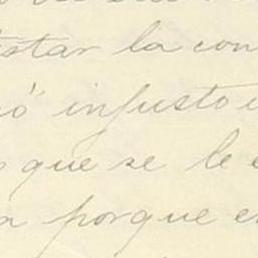 star la con
ó injusto
que se le
porque e